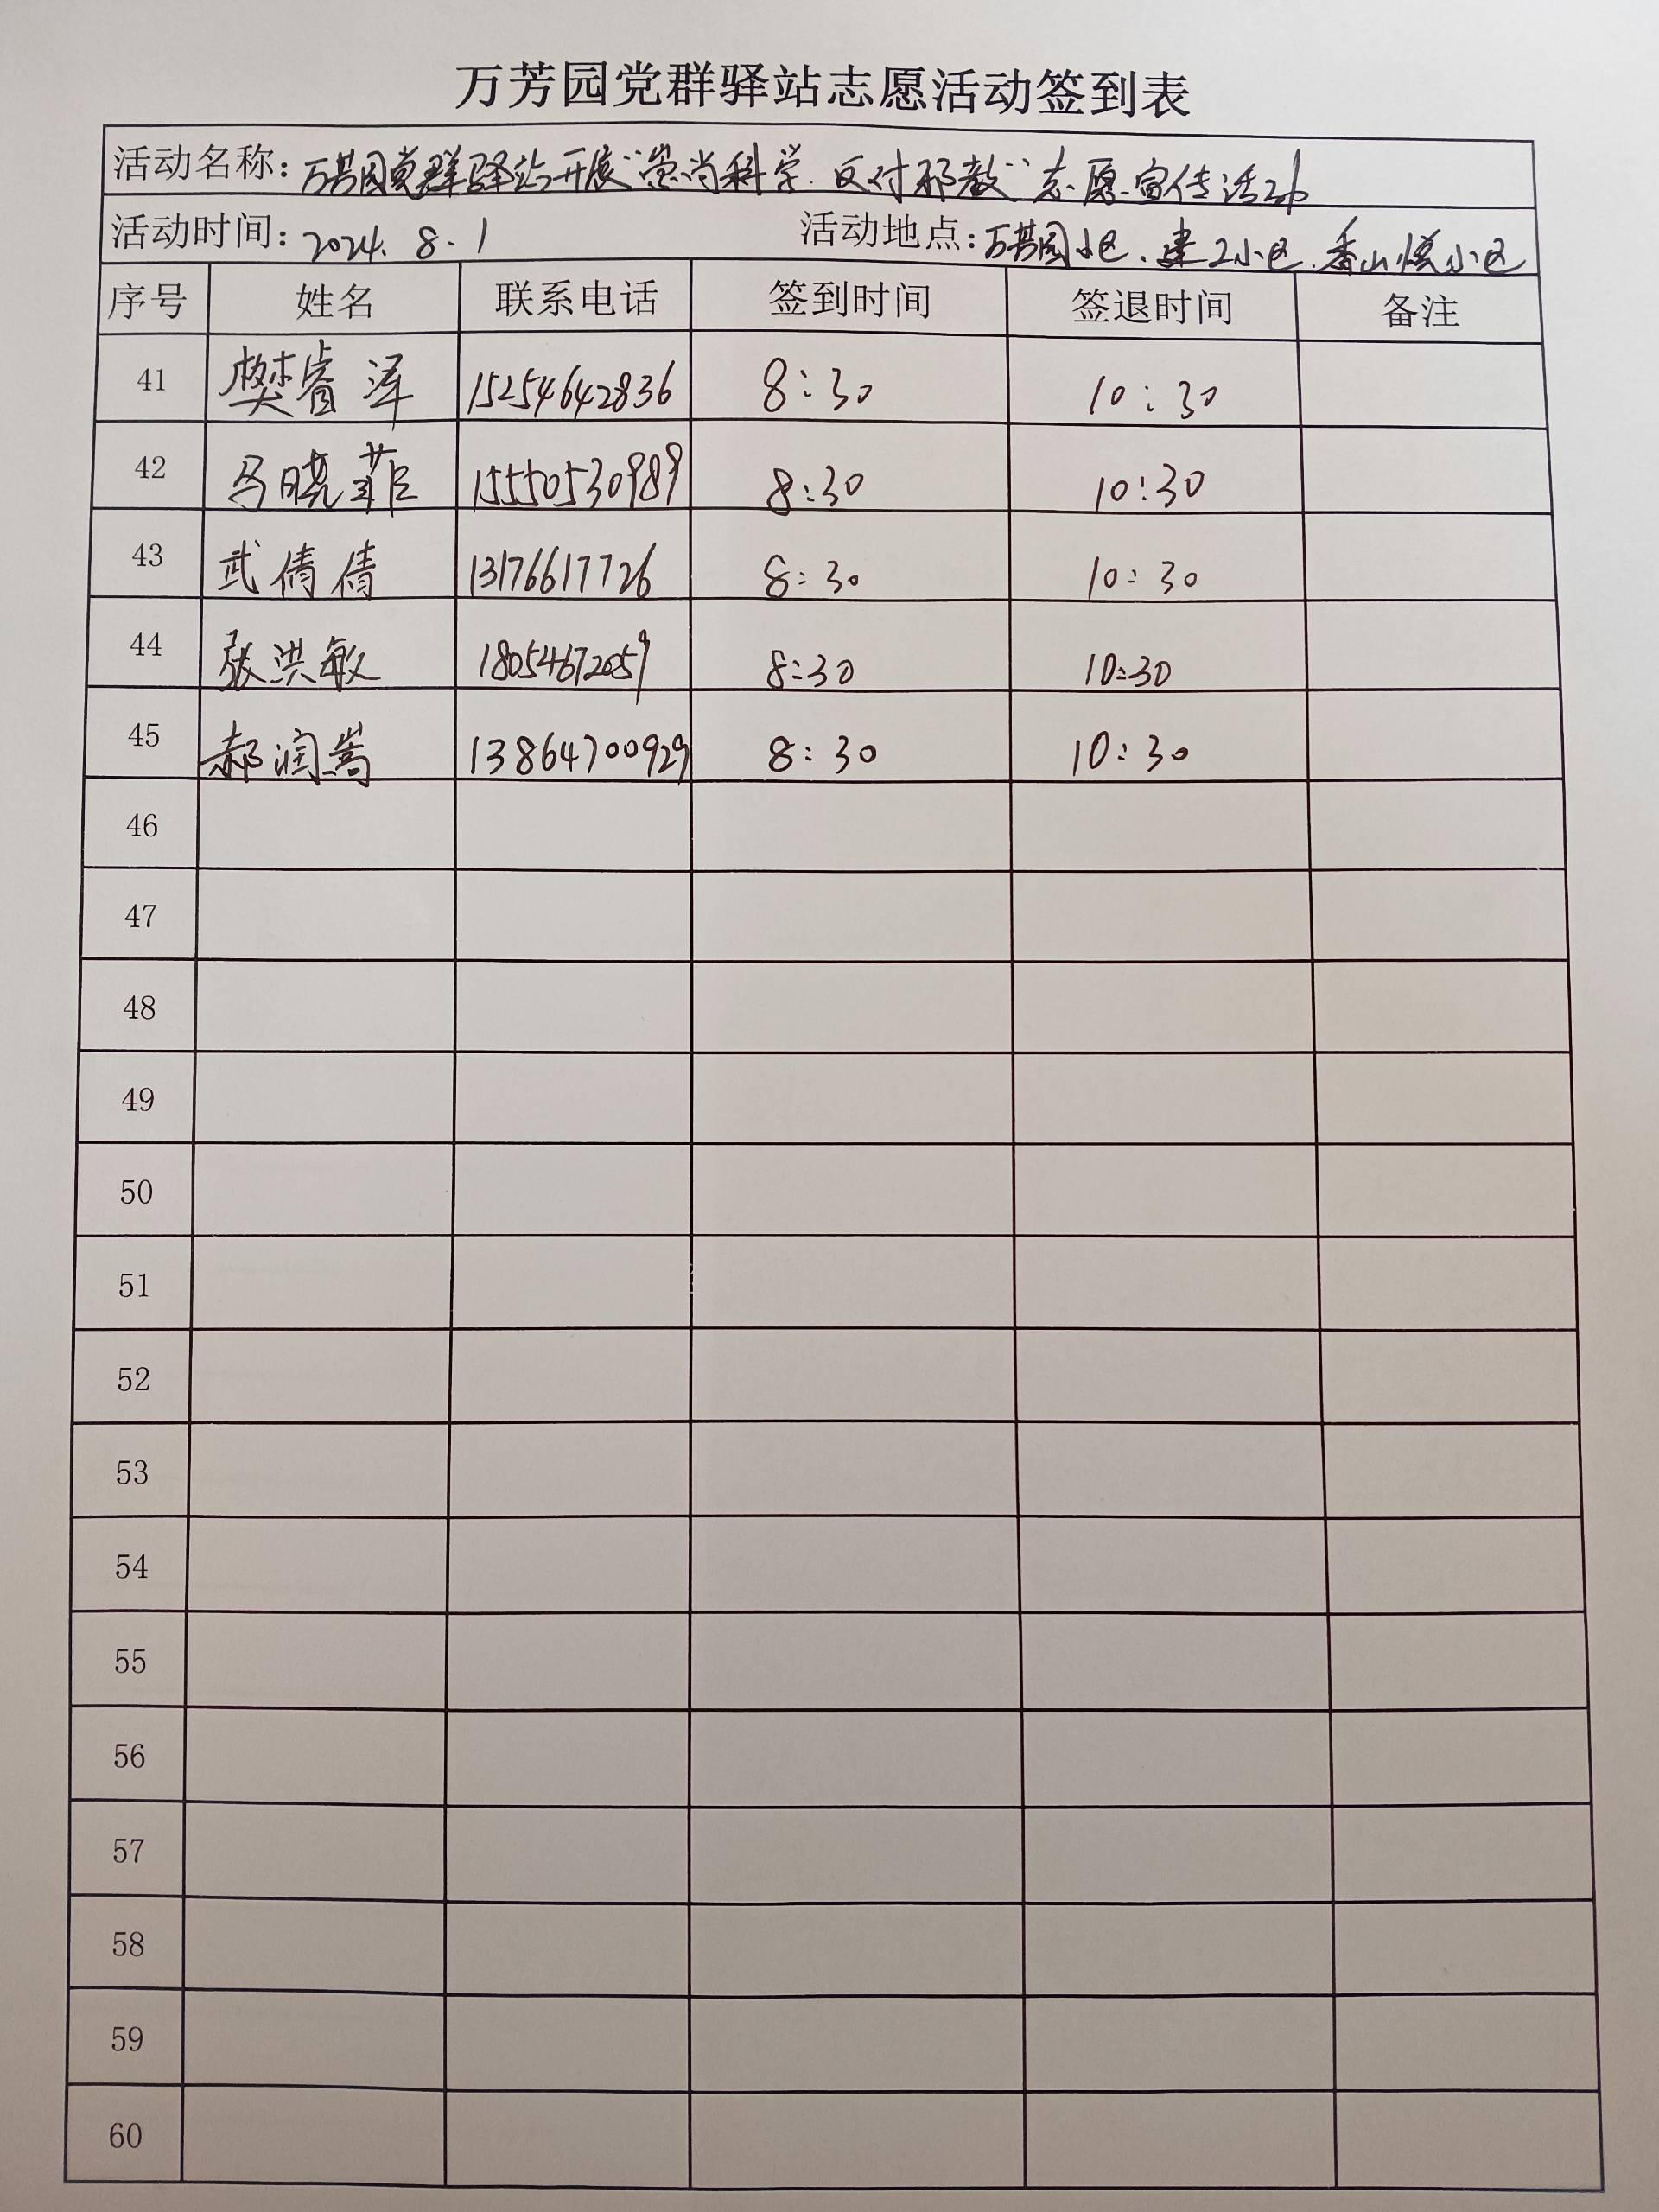 万芳园党群驿站志愿活动签到表
活动名称：万芳园党群驿站开展“崇尚科学、反对邪教”志愿宣传活动
活动时间：2024.8.1 活动地点：万芳园小区、建工小区、香山悦小区
序号 姓名 联系电话 签到时间 签退时间 备注
41 樊睿泽 15254642836 8:30 10:30
42 马晓菲 15550530989 8:30 10:30
43 武倩倩 13176617726 8:30 10:30
44 张洪敏 18054672059 8:30 10:30
45 郝润嵩 13864700929 8:30 10:30
46
47
48
49
50
51
52
53
54
55
56
57
58
59
60